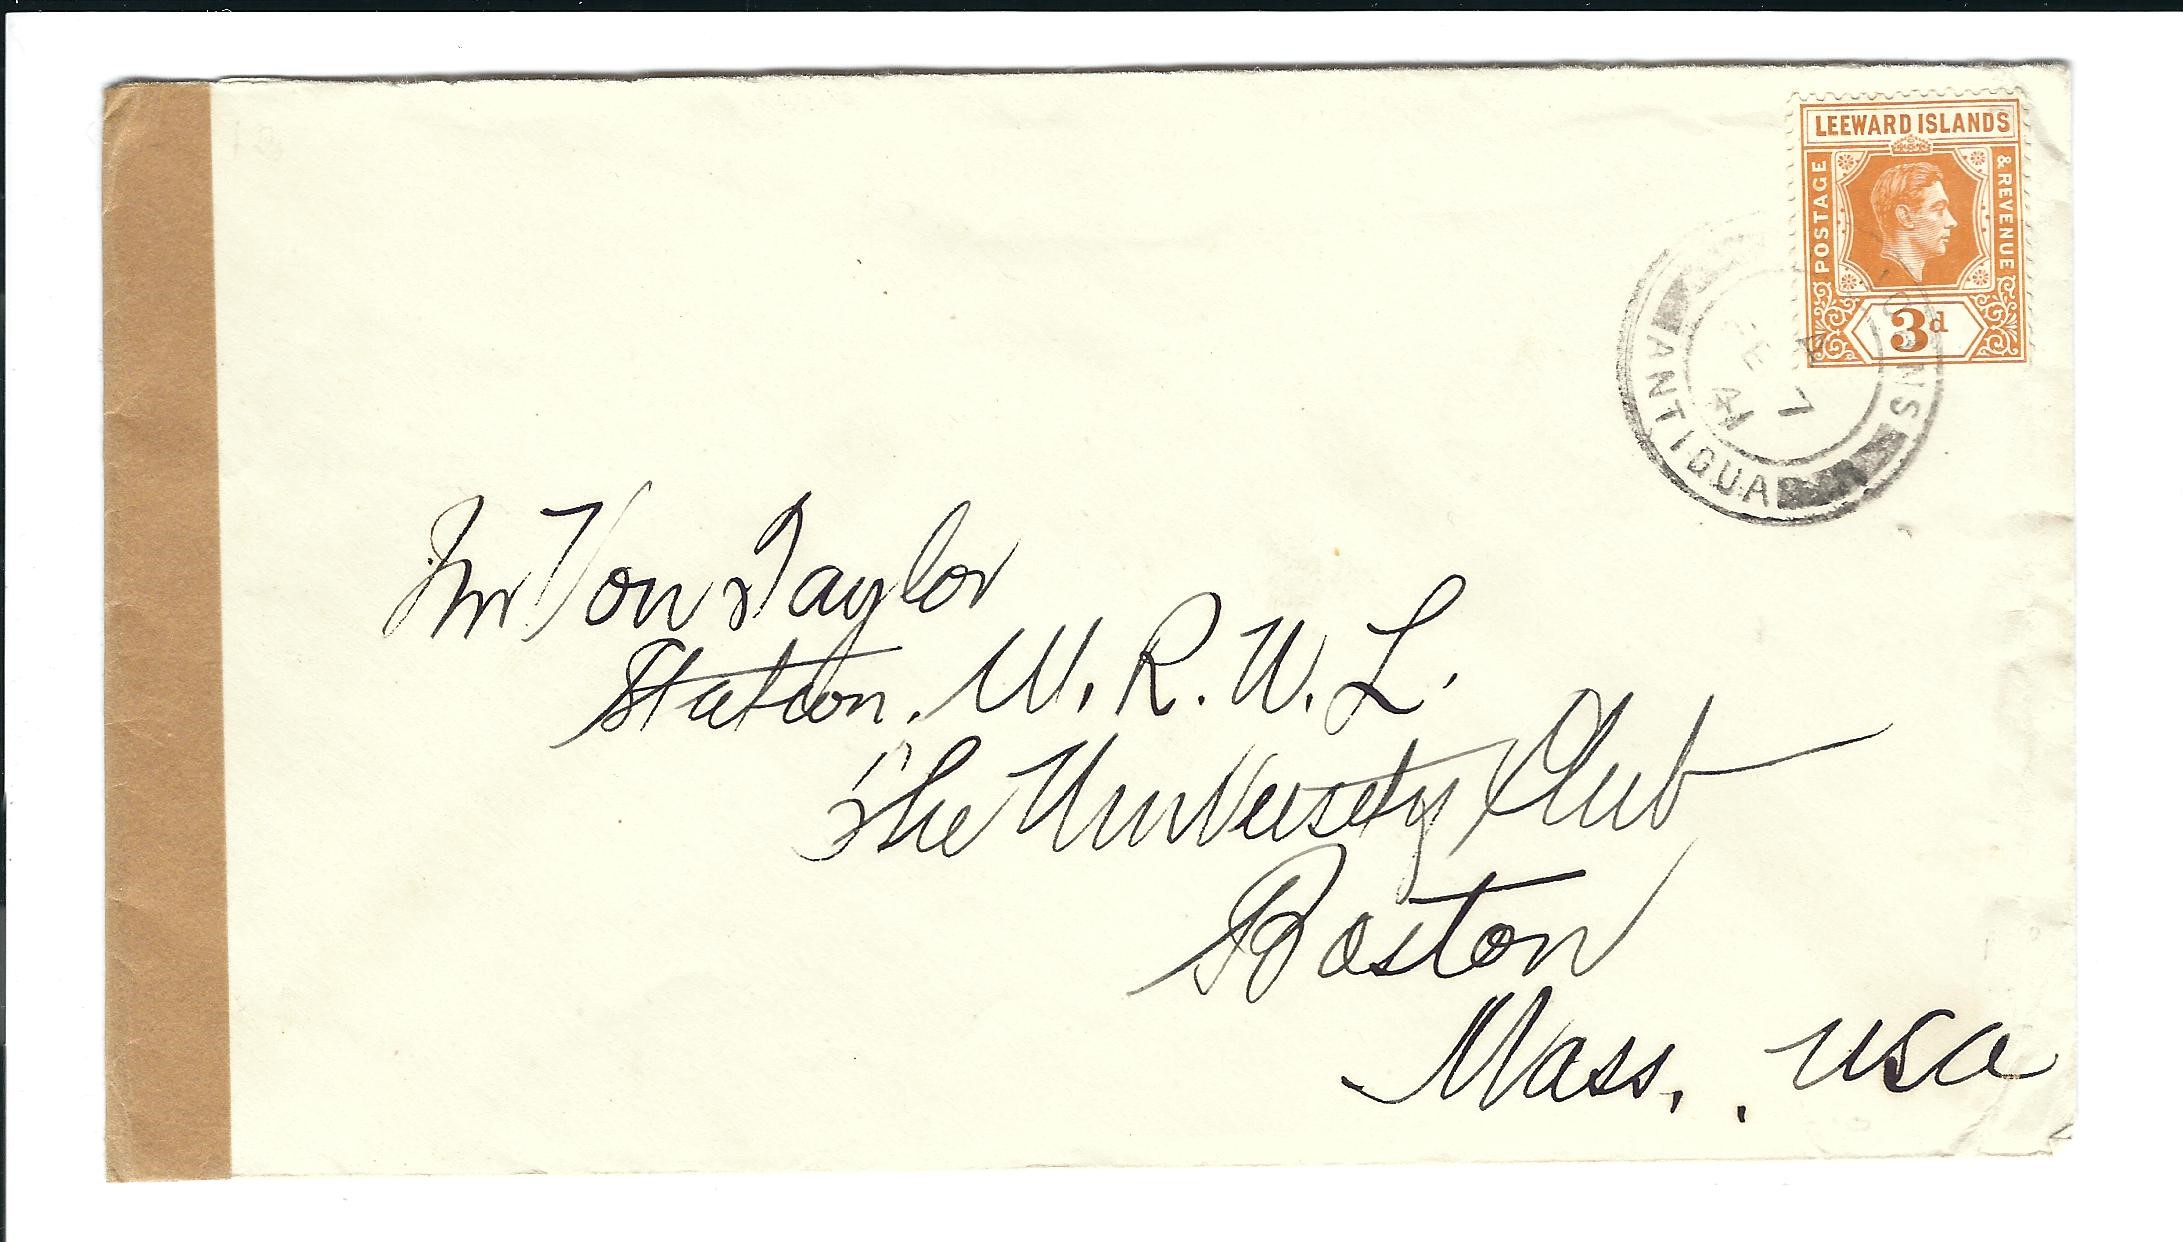 LEEWARD ISLANDS
POSTAGE
& REVENUE
3d
ANTIGUA
7
41
Mr Von Taylor
Station. W. R. W. L.
The University Club
Boston
Mass, . USA